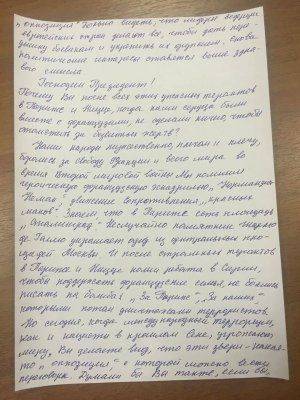 „оппозиция". Больно видеть, что лидеры ведущих
европейских стран делают все, чтобы дать пере-
дышку боевикам и укрепить их духовно. Снова
политические интересы ставятся выше здра-
вого смысла.
Господин Президент!
Почему Вы после всех этих ужасных терактов
в Париже и Ницце, когда наши сердца были
вместе с французами, не сделали ничего, чтобы
отомстить за безвинных жертв?
Наши народы мужественно, плечом к плечу,
боролись за свободу Франции и всего мира во
время Второй мировой войны. Мы помним
героическую французскую эскадрилью „Нормандия-
Неман", движение сопротивления „красных
маков". Знаем что в Париже есть площадь
„Сталинград". Неслучайно памятник генералу
де Голлю украшает одну из центральных пло-
щадей Москвы. И после страшных терактов
в Париже и Ницце наши ребята в Сирии,
чтобы поддержать французские семьи, на бомбах
писали: „За Париж", „За наших",
которыми потом уничтожали террористов.
Но сегодня, когда международный терроризм,
как и нацисты в прошлом веке, угрожает
миру, Вы делаете вид, что эти звери -
то „оппозиция", с которой можно вести
переговоры. Думали бы Вы также, если бы,